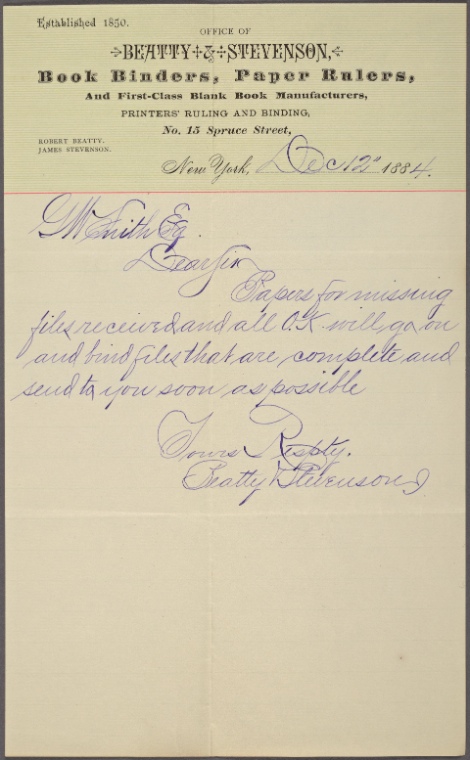 Established 1850.
OFFICE OF
BEATTY & STEVENSON,
Book Binders, Paper Rulers,
And First-Class Blank Book Manufacturers,
PRINTERS' RULING AND BINDING,
No. 15 Spruce Street,
ROBERT BEATTY.
JAMES STEVENSON.
New York, Dec 12" 1884.
GW Smith Esq.
Dear Sir
Papers for missing
files received and all O.K will go on
and bind files that are complete and
send to you soon as possible
Yours Respty.
Beatty & Stevenson